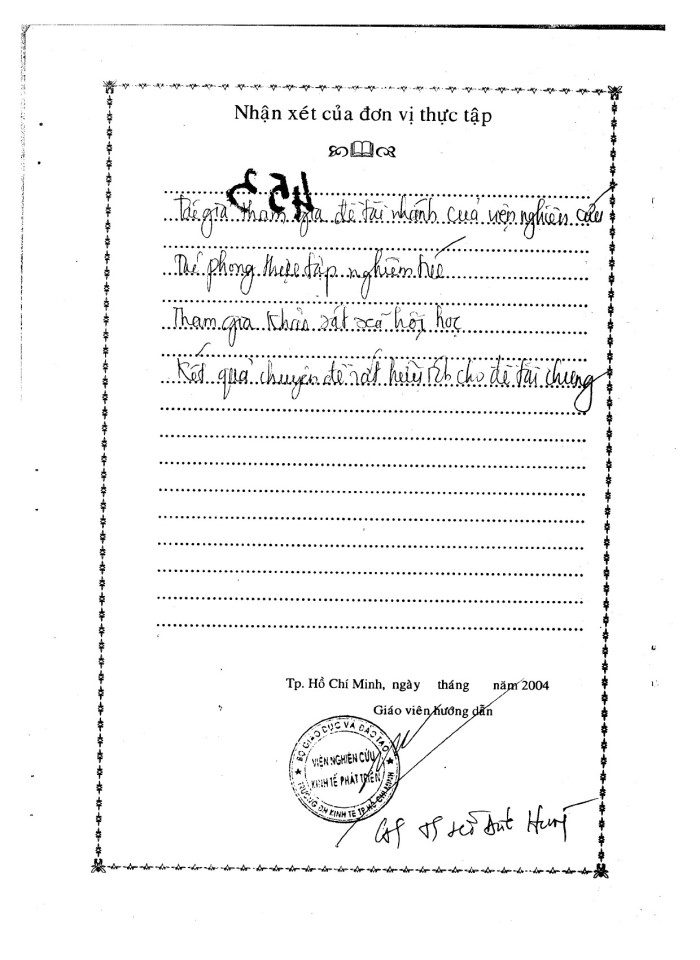 Nhận xét của đơn vị thực tập
453
Tác giả tham gia đề tài nhánh của viện nghiên cứu
Tác phong thực tập nghiêm túc
Tham gia khảo sát xã hội học
Kết quả chuyên đề rất hữu ích cho đề tài chung
Tp. Hồ Chí Minh, ngày tháng năm 2004
Giáo viên hướng dẫn
BỘ GIÁO DỤC VÀ ĐÀO TẠO
VIỆN NGHIÊN CỨU
KINH TẾ PHÁT TRIỂN
TRƯỜNG ĐH KINH TẾ TP. HỒ CHÍ MINH